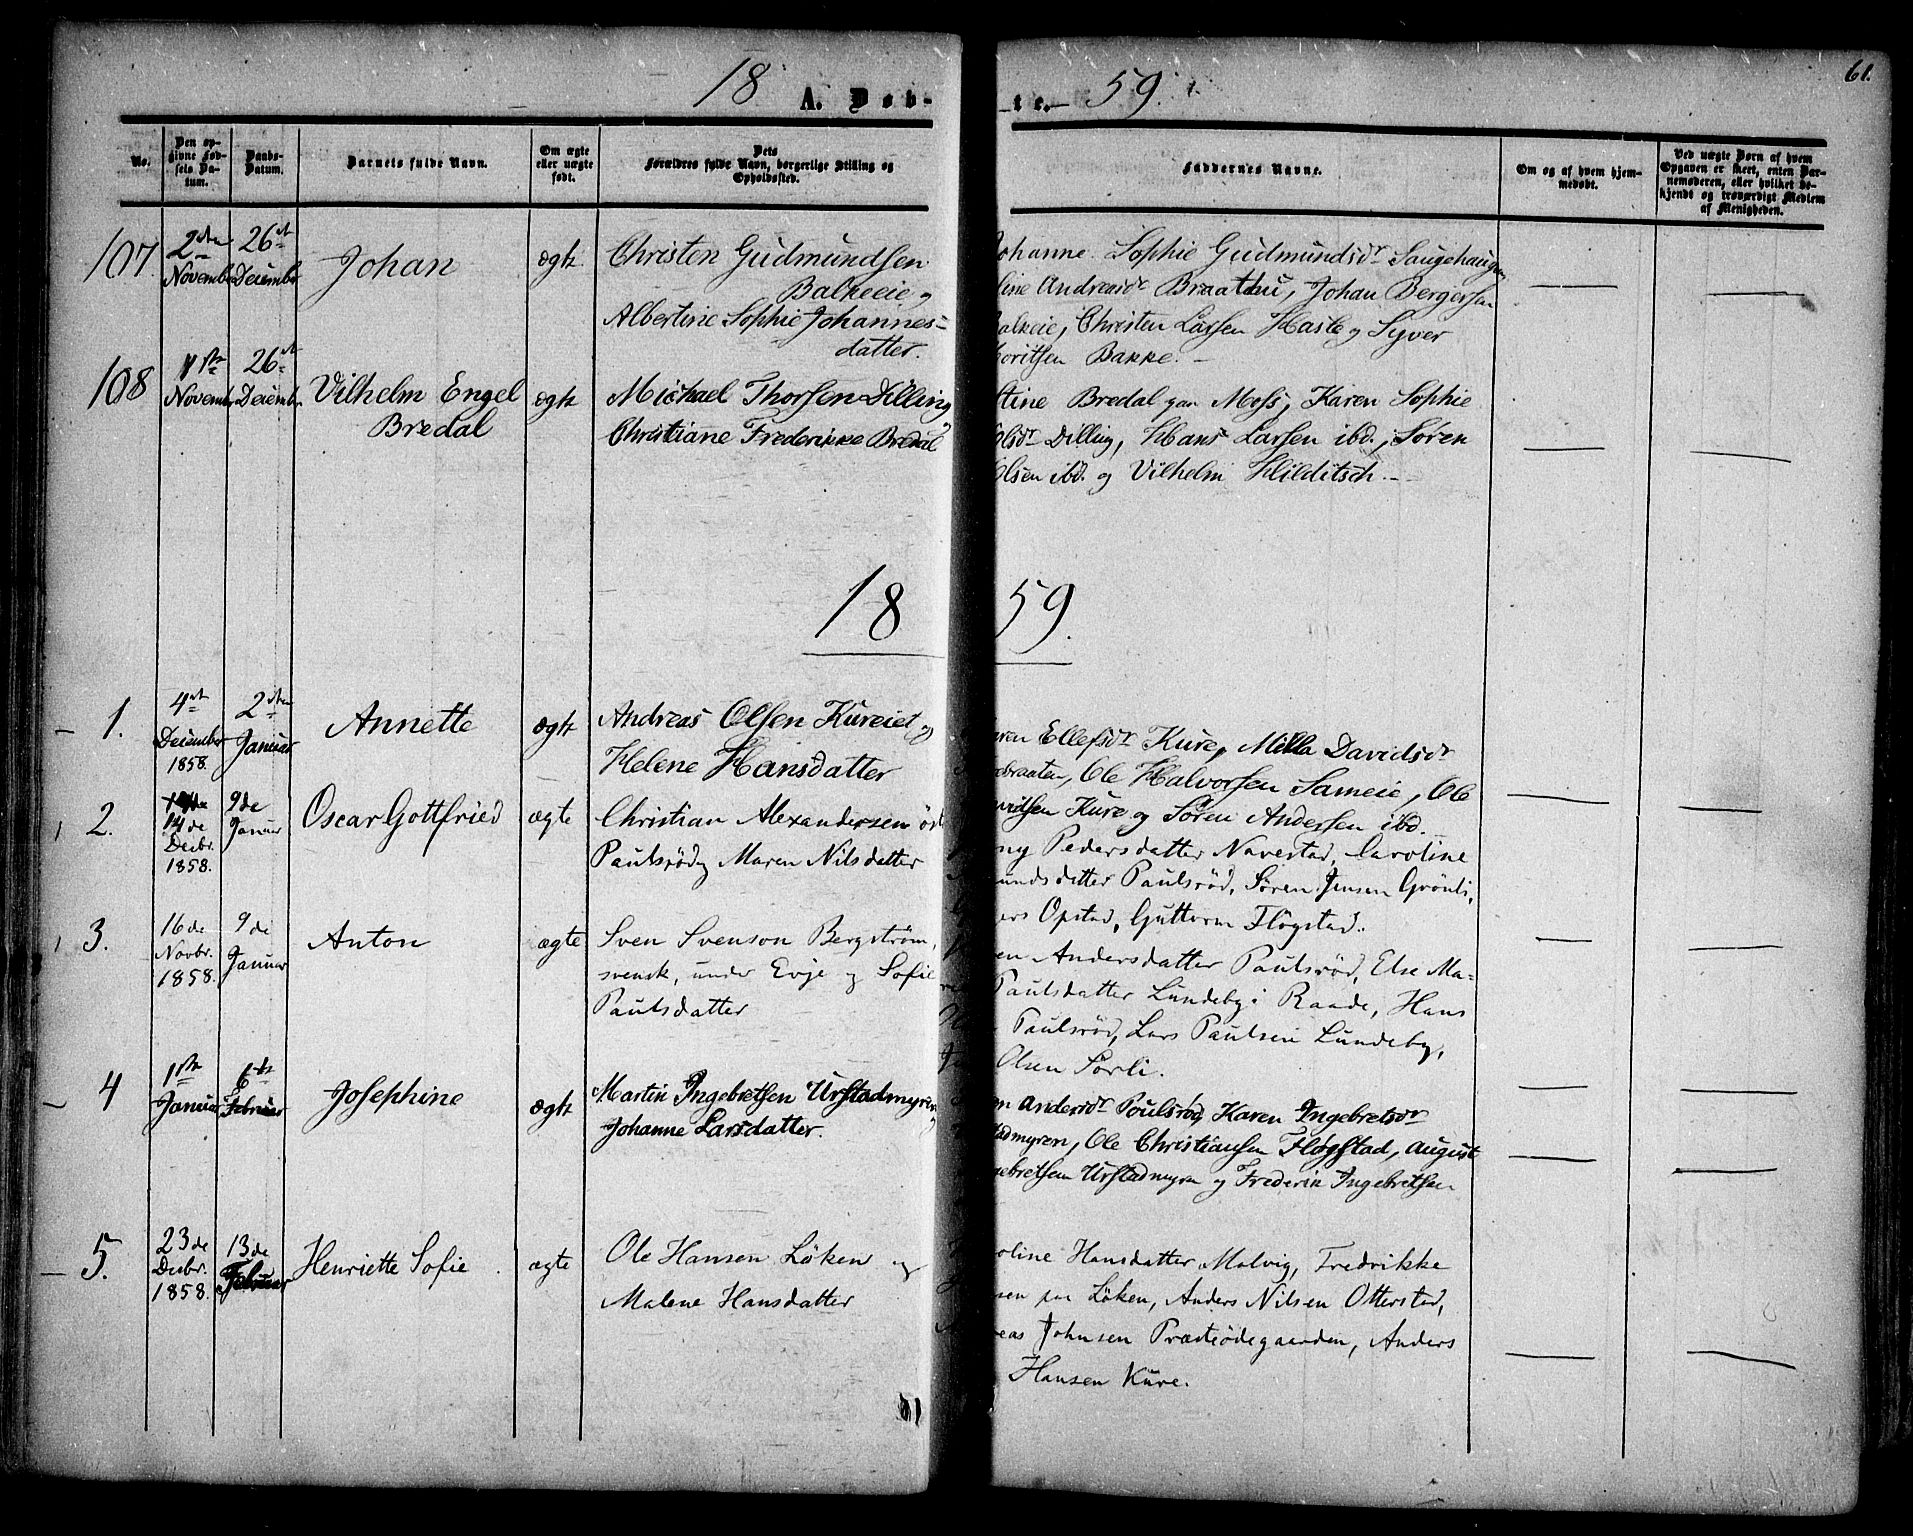 61.
18 A. Døb-
te. 59.
No.
Den op-
givne Fød-
sels Da-
tum.
Daabs-
Datum.
Barnets fulde Navn.
Om ægte
eller uægte
født.
Dets
Forældres fulde Navn, borgerlige Stilling og
Opholdssted.
Faddernes Navne.
Om og af hvem hjem-
medøbt.
Ved uægte Børn af hvem
Opgaven er skeet, enten Bar-
nemoderen, eller hvilket be-
kjendt og troværdigt Medlem
af Menigheden.
107.
2den
November
26de
December
Johan
ægte
Christen Gudmundsen
Balkeeie og
Albertine Sophie Johannes-
datter.
Johanne Sophie Gudmundsdr Saugehaugen
line Andreasdr Braathen, Johan Bergersen
Balkeie, Christen Larsen Hasle og Syver
Moritsen Bakke.
108
11te
November
26de
December
Vilhelm Engel
Bredal
ægte
Michael Thorsen Dilling
Christiane Frederikke Bredal
stine Bredal paa Moss, Karen Sophie
Olsdr Dilling, Hans Larsen ibd., Søren
Olsen ibd. og Vilhelm Hilditsch.
18 59.
1.
4de
December
1858.
2den
Januar
Annette
ægte
Andreas Olsen Kureiet og
Helene Hansdatter
aren Ellefsdr Kure, Milla Davidsdr
braaten, Ole Halvorsen Sameie, Ole
vidsen Kure og Søren Andersen ibd.
2.
14de
Decbr.
1858.
9de
Januar
Oscar Gottfried
ægte
Christian Alexandersen øst
Paulsrød og Maren Nilsdatter
ny Pedersdatter Navestad, Caroline
undsdatter Paulsrød, Søren Jensen Grønli,
ers Opstad, Guttorm Flogstad.
3.
16de
Novbr.
1858.
9de
Januar
Anton
ægte
Sven Svenson Bergstrøm,
svensk, under Evje og Sofie
Paulsdatter
en Andersdatter Paulsrød, Else Ma-
Paulsdatter Lundeby i Raade, Hans
Paulsrød, Lars Paulsen Lundeby,
Olsen Sørli.
4
1ste
Januar
6te
Februar
Josephine
ægte
Martin Ingebretsen Urstadmyren og
Johanne Larsdatter.
en Andersdr Poulsrød, Karen Ingebretsdr
tadmyren, Ole Christiansen Flogstad, August
gebretsen Urstadmyren og Frederik Ingebretsen
5.
23de
Decbr.
1858.
13de
Februar
Henriette Sofie
ægte
Ole Hansen Løken og
Malene Hansdatter
oline Hansdatter Malvig, Fredrikke
sen paa Løken, Anders Nilsen Otterstad,
reas Johnsen Præstødegaarden, Anders
Hansen Kure.